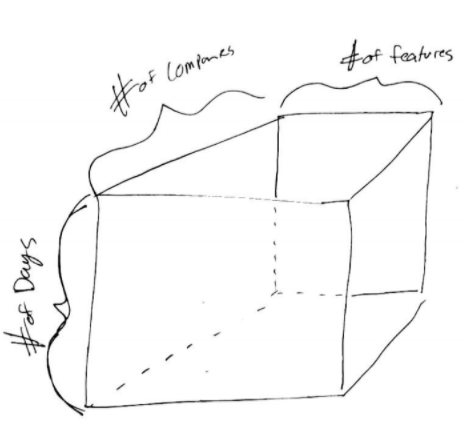 # of Companies
# of features
# of Days